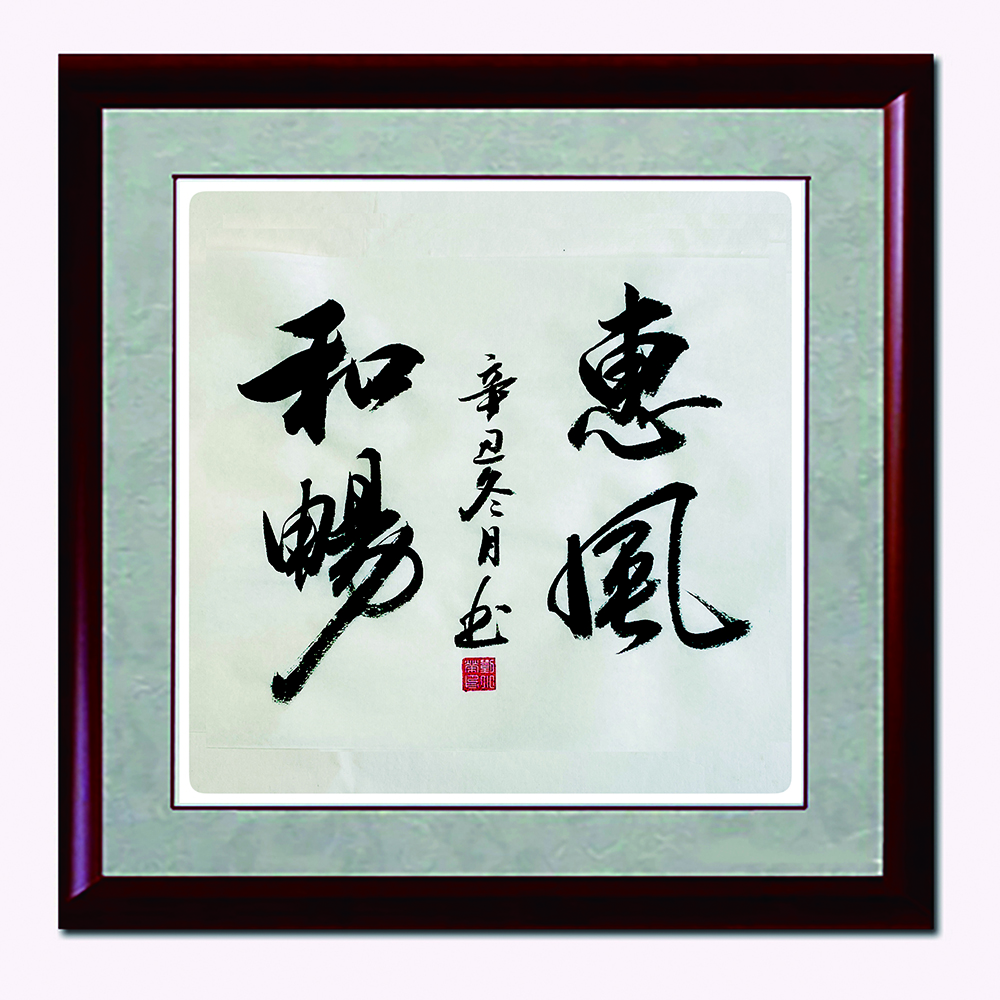 惠風
和暢
辛丑冬月书